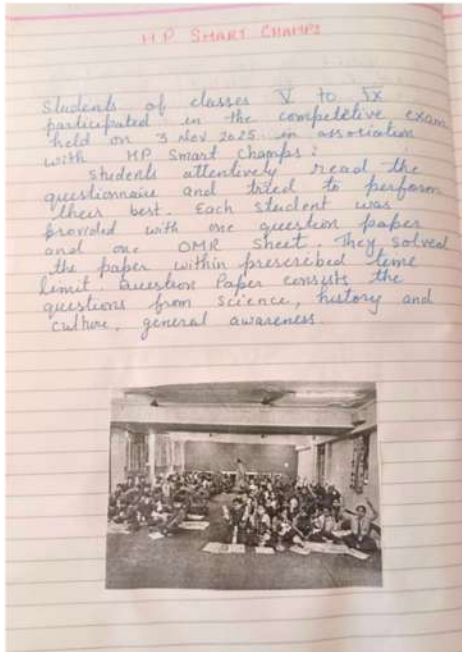 H P SMART CHAMPS
Students of classes V to IX
participated in the competetive exam
held on 3 Nov 2025 in association
with HP Smart Champs.
Students attentively read the
questionnaire and tried to perform
their best. Each student was
provided with one question paper
and one OMR Sheet. They solved
the paper within prescribed time
limit. Question Paper consists the
questions from science, history and
culture, general awareness.